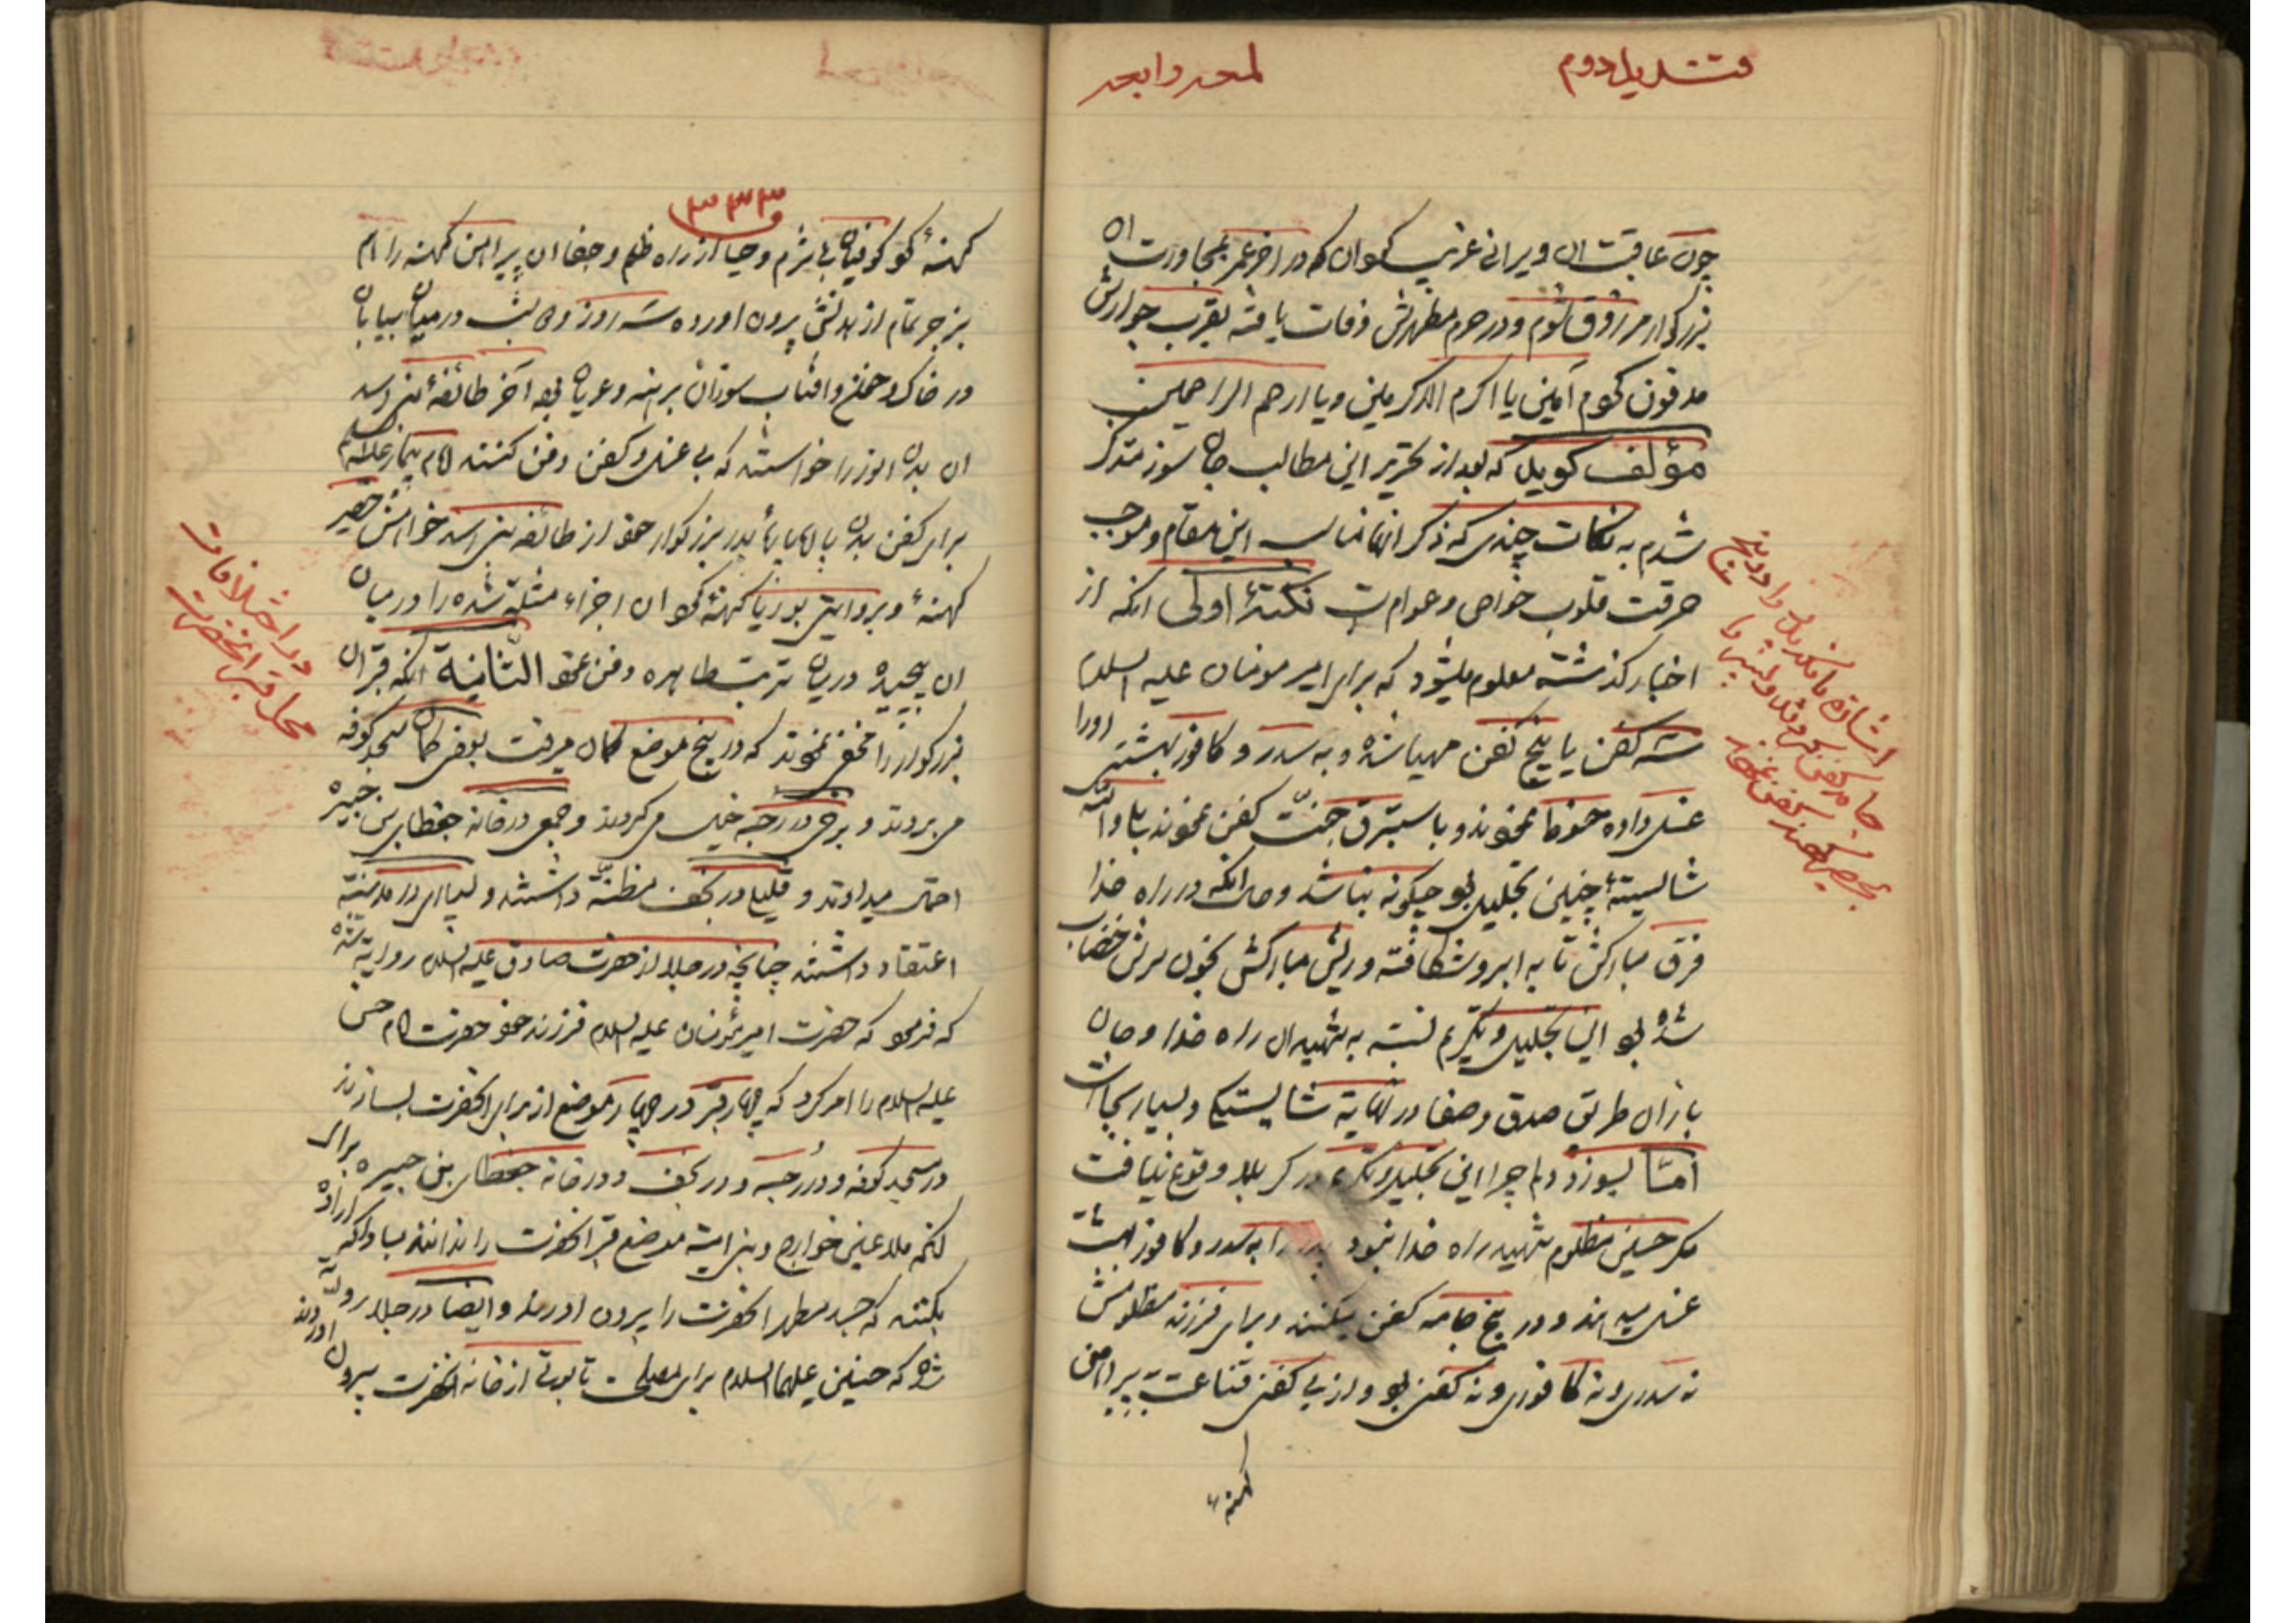 قندیل دوم
لمعه رابعه
چون عاقبت ان ویرانی عزیب کوان که در اخر عمر بمجاورت ان
بزرکوار مرزوق شوم و در حرم مطهرش وفات یافته بقرب جوارش
مدفون کردم آمین یا اکرم الاکرمین و یا ارحم الراحمین
مؤلف کوید که بعد از تحریر این مطالب جان سوز متذکر
شدم به نکات چندی که ذکر انها مناسب این مقام و موجب
حرقت قلوب خواص و عوام است نکتۀ اولی انکه از
اخبار کذشته معلوم میشود که برای امیر مومنان علیه السلام
سه کفن یا پنج کفن مهیا شده و به سدر و کافور بهشتی اورا
غسل داده حنوط نمودند و با ستبرق جنّت کفن نمودند بلی والله
شایستۀ چنین تجلیل بود چکونه نباشد و حال انکه در راه خدا
فرق مبارکش تا به ابرو شکافته و ریش مبارکش بخون سرش خضاب
شده بود این تجلیل و تکریم نسبت به شهیدان راه خدا و جان
بازان طریق صدق و صفا در نهایة شایستکی و بسیار بجا است
امّا بسوزد دلم چرا این تجلیل و تکریم در کربلا وقوع نیافت
مکر حسین مظلوم شهید راه خدا نبود پدر را به سدر و کافور بهشت
غسل میدهند و در پنج جامه کفن میکنند و برای فرزند مظلومش
نه سدری و نه کافوری و نه کفنی بود و از بی کفنی قناعت به پیراهن
کهنۀ
اشاره
۳۳۳
کهنۀ کو کوفیان بی شرم و حیا از راه ظلم و جفا ان پیراهن کهنه را هم
بزجر تمام از بدنش بیرون اورده سه روز و شب در میان بیابان
در خاک و خون و افتاب سوزان برهنه و عریان بود آخر طائفۀ بنی اسد
ان بدن انور را خواستند که بی غسل و کفن دفن کنند امام بیمار علیه السلام
برای کفن بدن پدر بزرکوار خود از طائفه بنی اسد خواهش حصیر
کهنۀ و بروایتی بوریا کهنۀ نمود ان اجزاء مثله شده را در میان
ان پیچیده در میان تربت طاهره دفن نمود الثّانیة انکه قبر ان
بزرکوار را مخفی نمودند که در پنج موضع کمان میرفت بعضی کمان مسجد کوفه
می بردند و برخی در رحبه خیال می کردند و جمعی در خانه جعطای بن جبیره
احتمال میدادند و قلیلی در نجف مظنّه داشتند و بسیاری در مدینه
اعتقاد داشتند چنانچه در جلا از حضرت صادق علیه السلام روایة شده
که فرمود که حضرت امیر مؤمنان علیه السلام فرزند خود حضرت امام حسن
علیه السلام را امر کرد که چهار قبر در چهار موضع از برای انحضرت بسازند
در مسجد کوفه و در رحبه و در نجف و در خانه جعطای بن جبیره برای
انکه ملاعین خوارج و بنی امیه موضع قبر انحضرت را ندانند مبادا که اراده
بکنند که جسد مطهر انحضرت را بیرون اورند و ایضا در جلا روایة
شده که حسنین علیهما السلام برای مصلحت تابوتی از خانه انحضرت بیرون اوردند
در اختلافات
محل قبر انحضرت